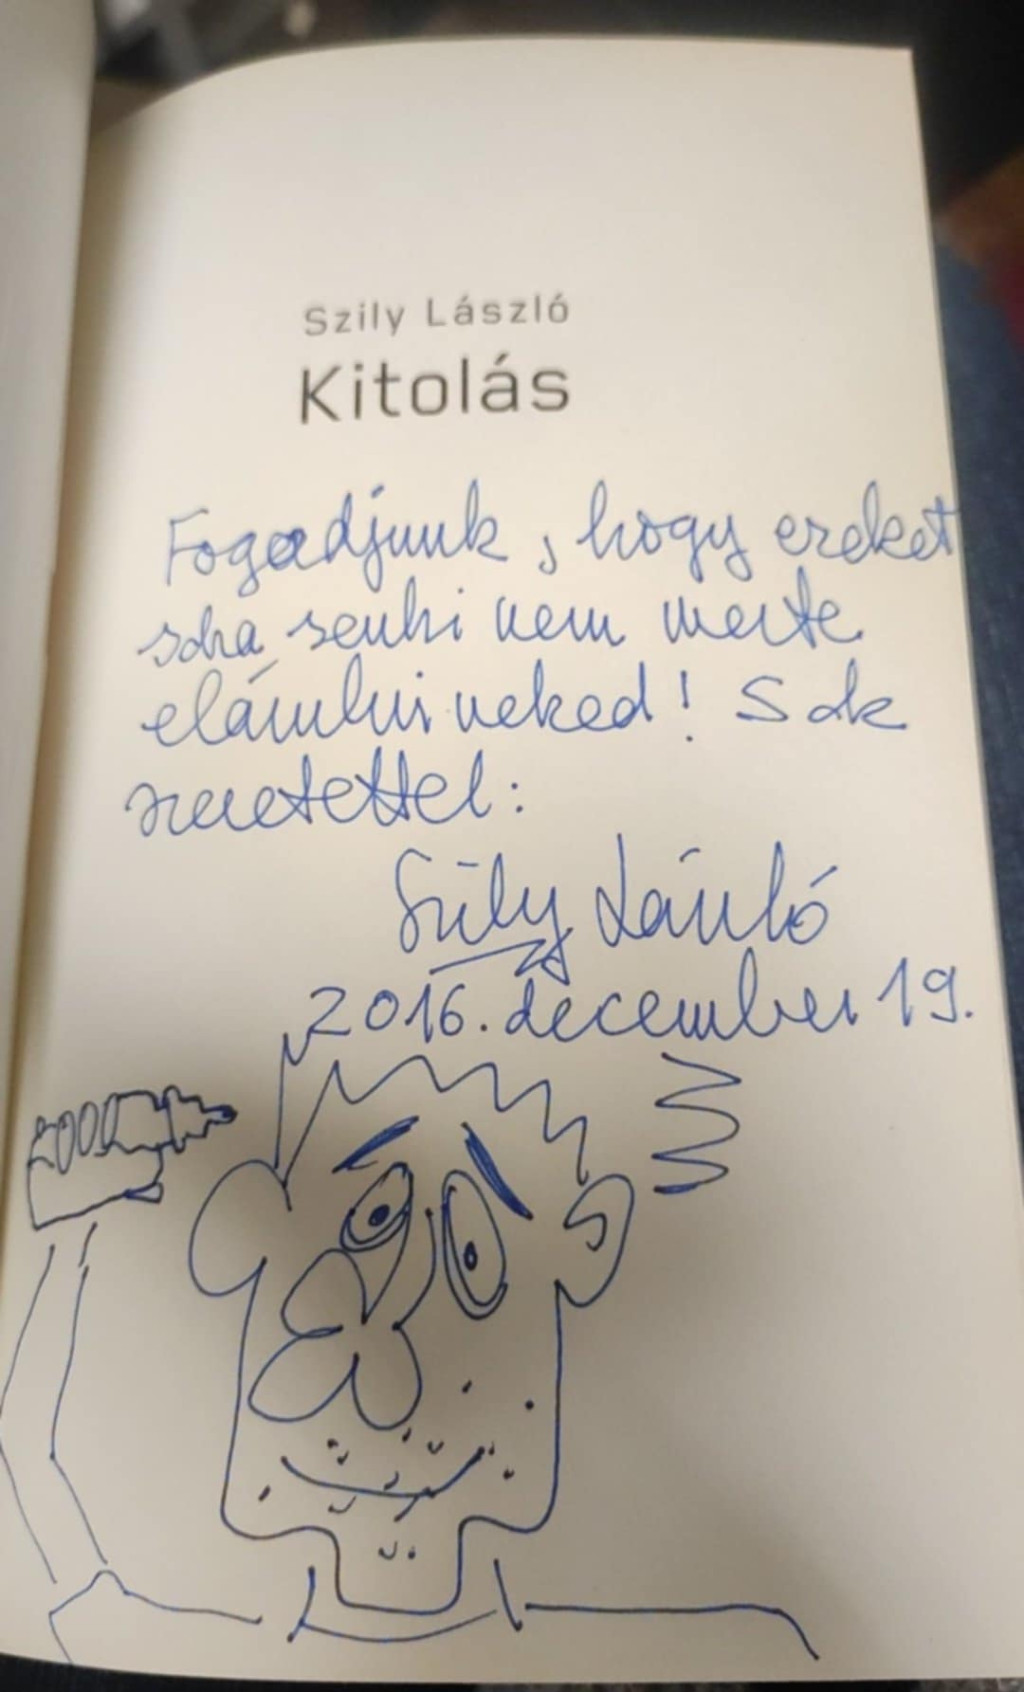 Szily László
Kitolás
Fogadjunk, hogy ezeket
soha senki nem merte
elárulni neked! Sok
szeretettel:
Szily László
2016. december 19.